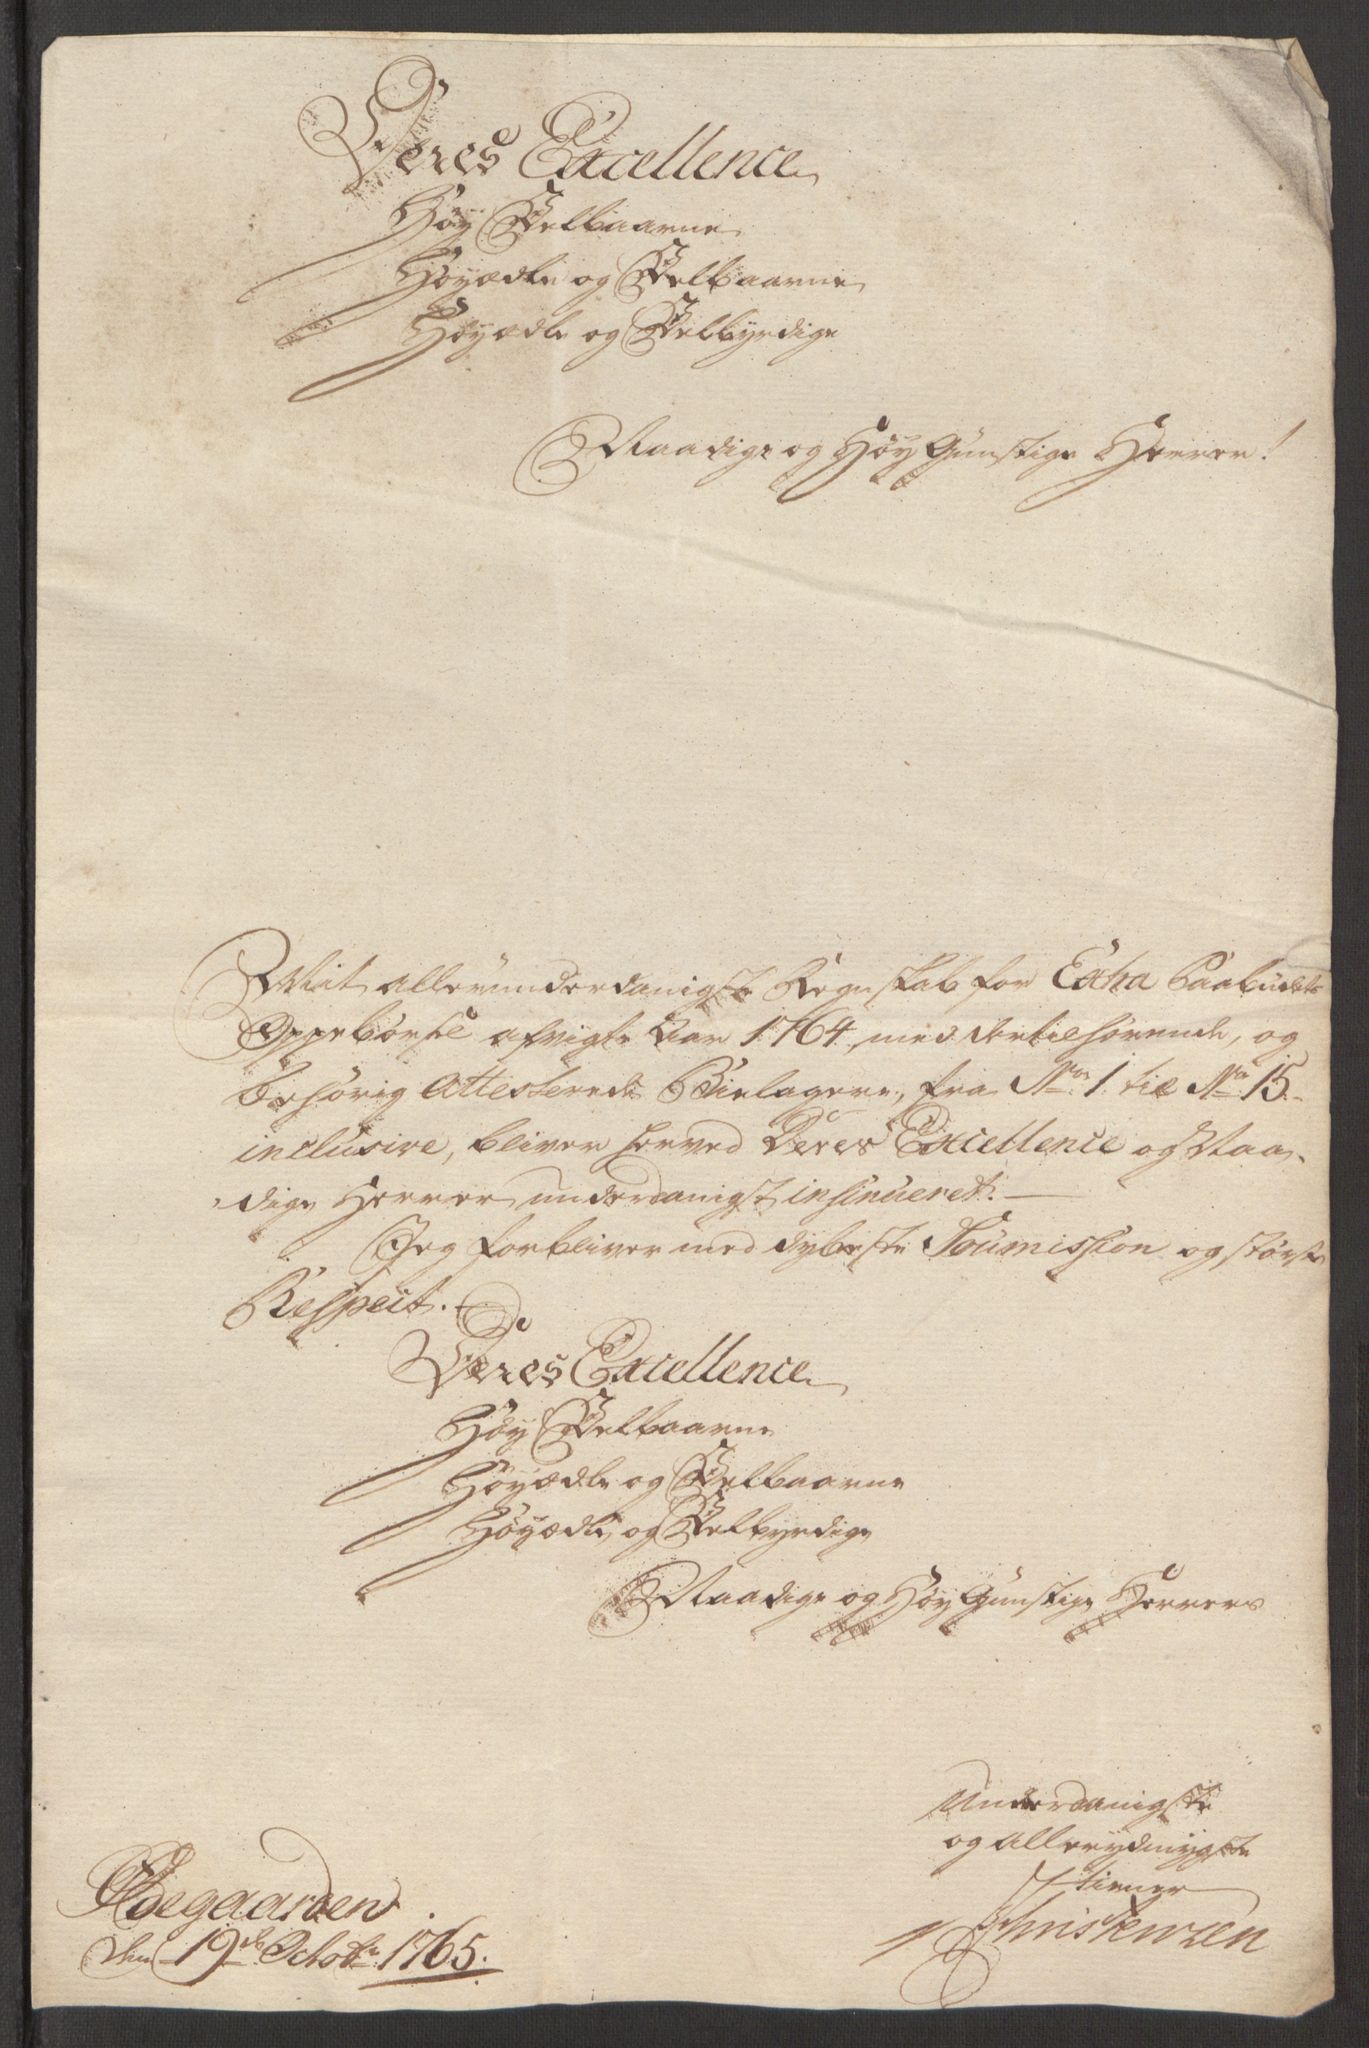 Deres Excellence
Høy Velbaarne
Høyædle og Velbaarne
Høyædle og Velbyrdige
Naadige og Høy Gunstige Herrer!
Mit allerunderdanigste Regnskab for Extra Paabudets
Oppebörsel afvigte Aar 1764, med dertilhörende, og
behörig Attesterede Bielagere, fra No. 1 til No. 15
inclusive, bliver herved Deres Excellence og Naa-
dige Herrer underdanigst insinueret. —
Jeg forbliver med dybeste Soumission og störste
Respect. —
Deres Excellence
Høy Velbaarne
Høyædle og Velbaarne
Høyædle og Velbyrdige
Naadige og Høy Gunstige Herrers
Underdanigste
og allerydmygste
tiener
Christensen
den 19de Octobr. 1765.